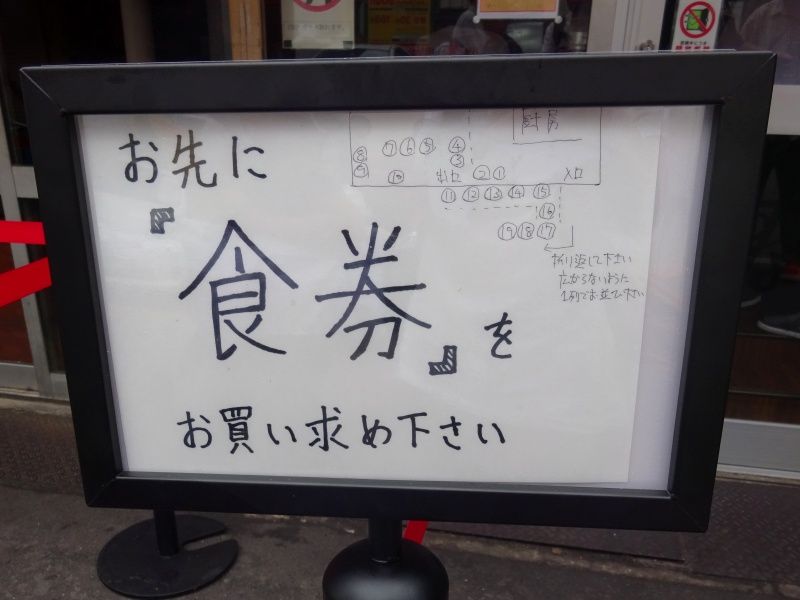 お先に
『食券』を
お買い求め下さい
厨房
⑦⑥⑤④
⑧
③
⑨
⑩
出口
②①
入口
⑪⑫⑬⑭⑮
⑯
⑲⑱⑰
折り返して下さい
広がらないように
1列でお並び下さい